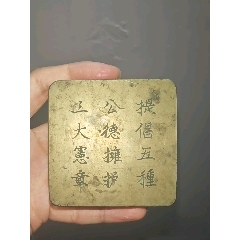 提倡五種
公德擁护
大憲章